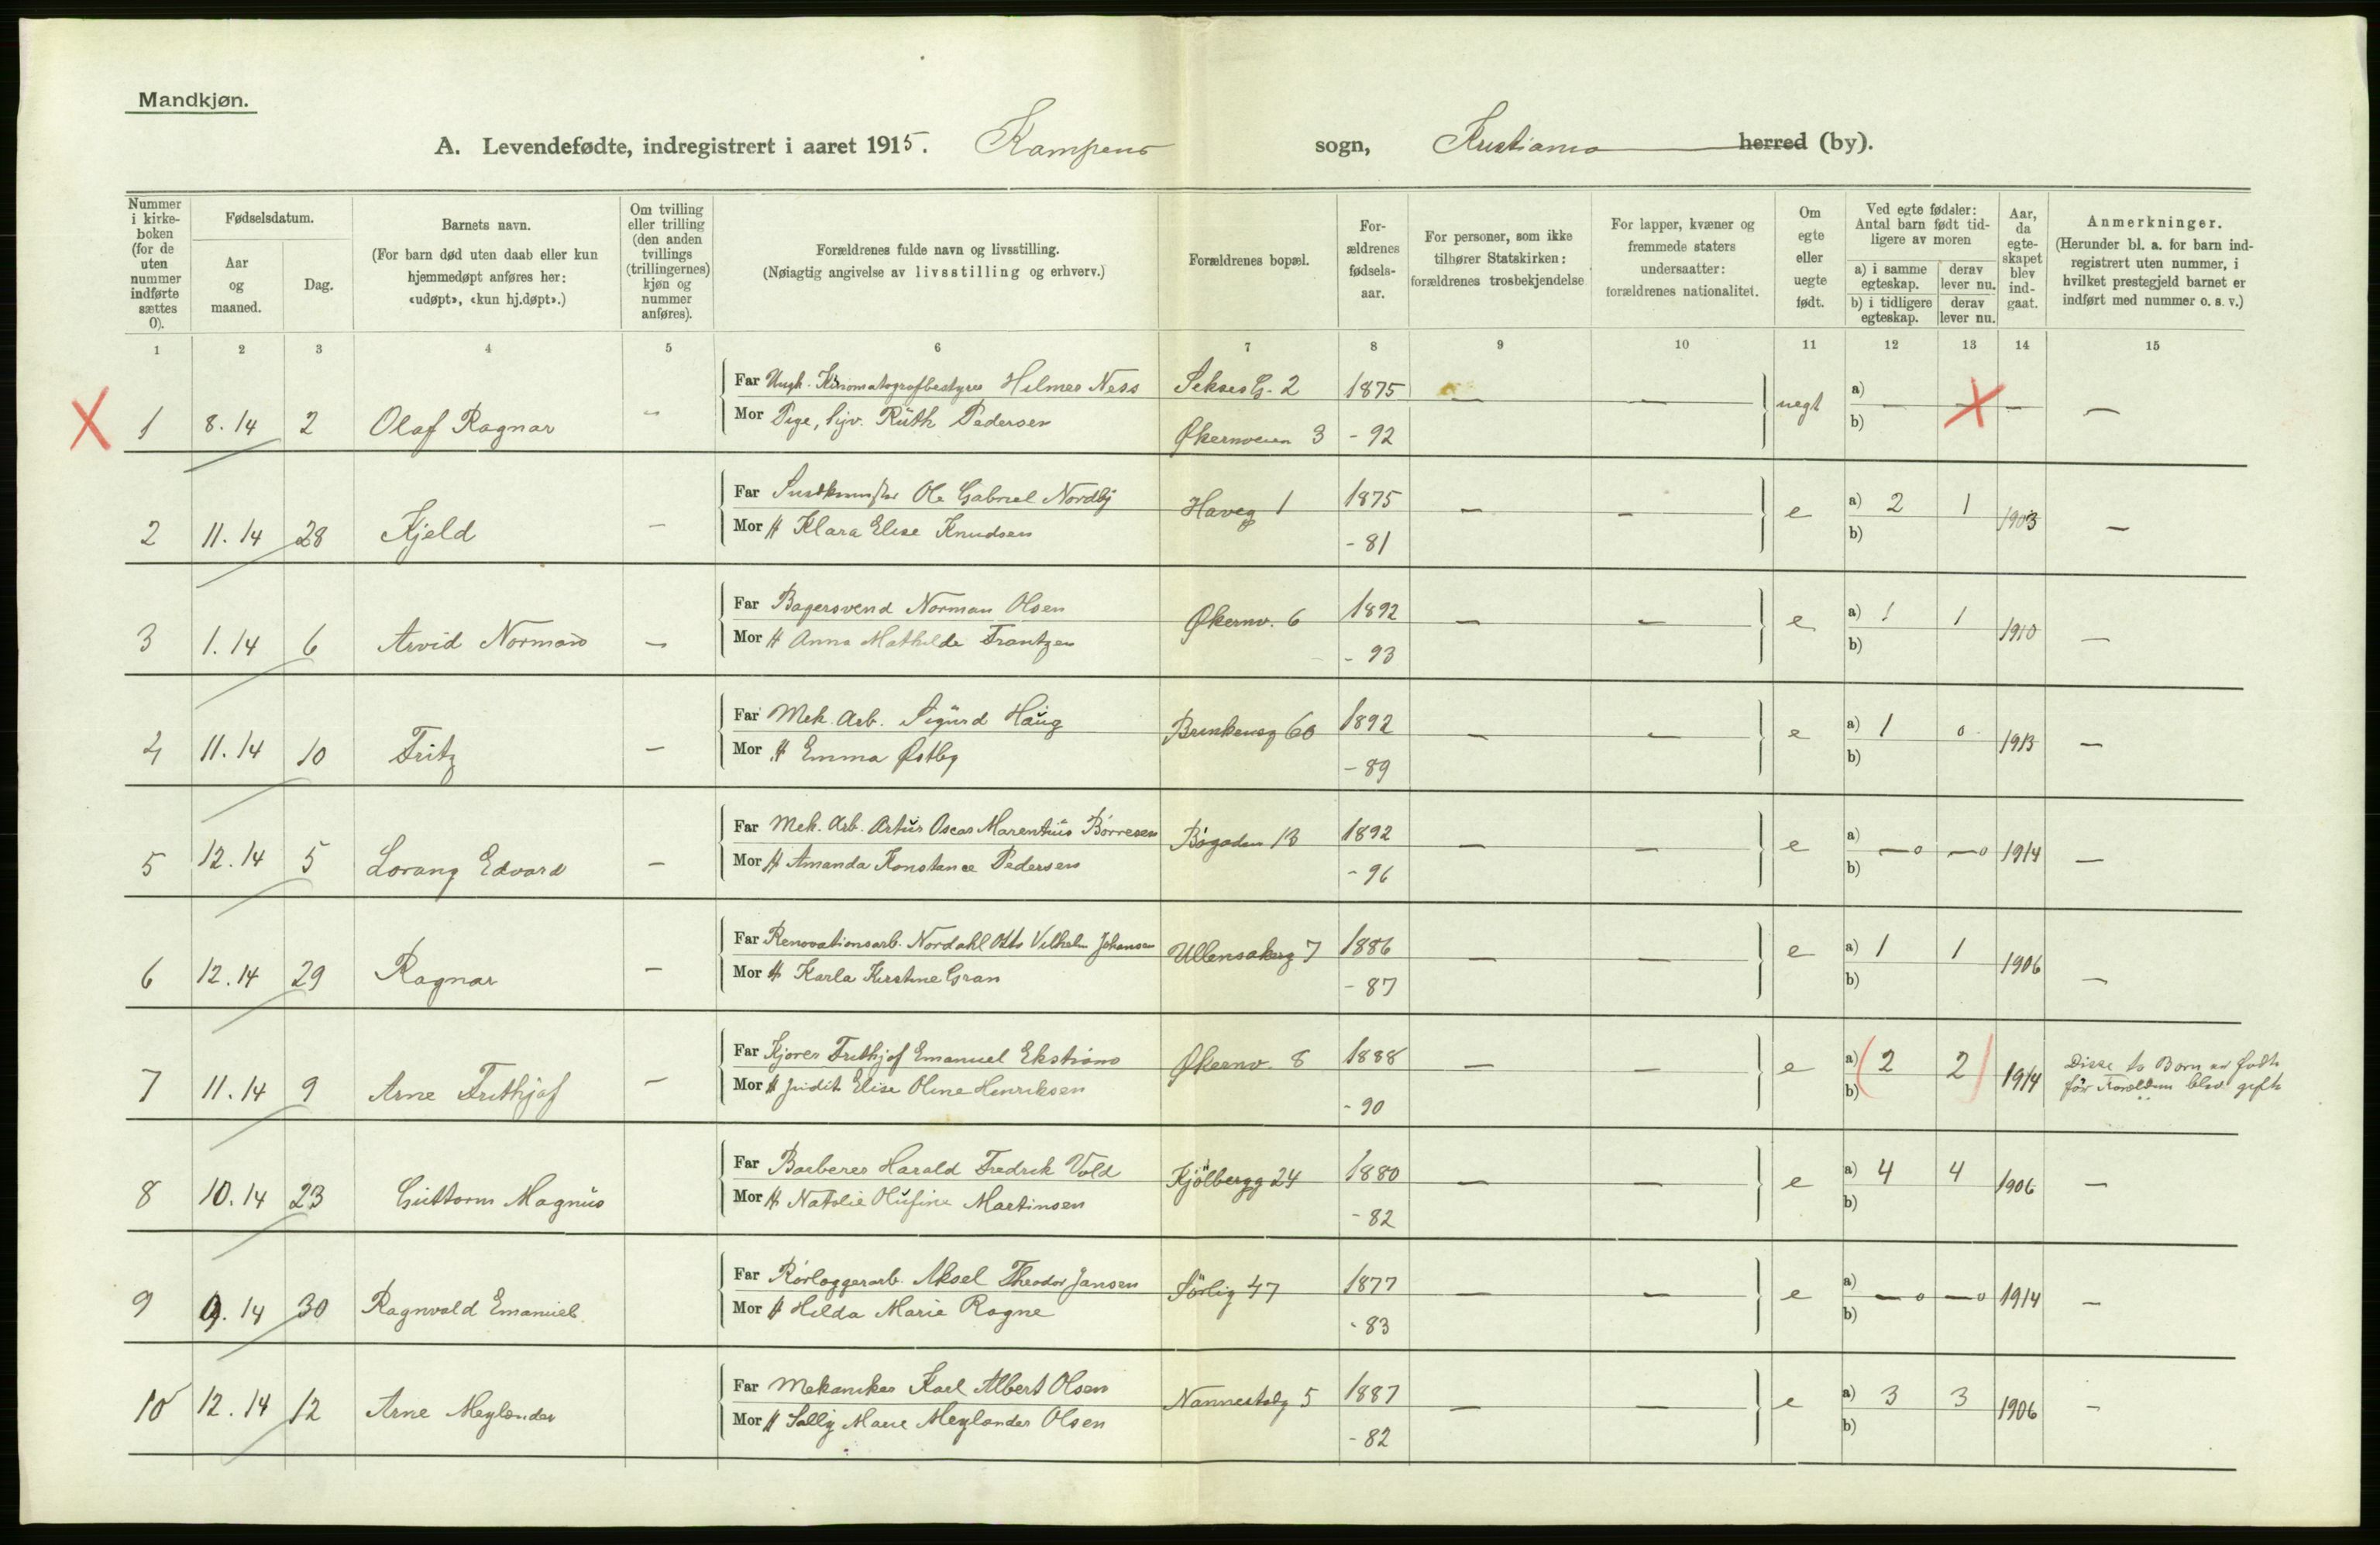 Mandkjøn.
A. Levendefødte, indregistrert i aaret 1915. Kampens sogn, Kristiania herred (by).
Nummer i kirkeboken (for de uten nummer indførte sættes 0).
Fødselsdatum.
Aar og maaned.
Dag.
Barnets navn.
(For barn død uten daab eller kun hjemmedøpt anføres her: «udøpt», «kun hj.døpt».)
Om tvilling eller trilling (den anden tvillings (trillingernes) kjøn og nummer anføres).
Forældrenes fulde navn og livsstilling.
(Nøiagtig angivelse av livsstilling og erhverv.)
Forældrenes bopæl.
Forældrenes fødselsaar.
For personer, som ikke tilhører Statskirken: forældrenes trosbekjendelse
For lapper, kvæner og fremmede staters undersaatter: forældrenes nationalitet.
Om egte eller uegte født.
Ved egte fødsler: Antal barn født tidligere av moren
a) i samme egteskap. derav lever nu.
b) i tidligere egteskap. derav lever nu.
Aar, da egteskapet blev indgaat.
Anmerkninger.
(Herunder bl. a. for barn indregistrert uten nummer, i hvilket prestegjeld barnet er indført med nummer o. s. v.)
1 2 3 4 5 6 7 8 9 10 11 12 13 14 15
Far Ungk. Kinomatografbestyrer Hilmer Ness Seksesg. 2 1875 — — uegt a) — — — —
X 1 8.14 2 Olaf Ragnar - Mor Pige, Syv. Ruth Pedersen Økernveien 3 - 92 b)
Far Ole Gabriel Nordby Haveg 1 1875 — — e a) 2 1 1903 —
2 11.14 28 Kjeld — Mor H Klara Elise Knudsen - 81 b)
Far Bagersvend Norman Olsen Økernv. 6 1892 — — e a) 1 1 1910 —
3 1.14 6 Arvid Norman — Mor H Anna Mathilde Frantzen - 93 b)
Far Mek. Arb. Sigurd Haug Brinkensg 60 1892 — — e a) 1 0 1913 —
4 11.14 10 Fritz — Mor H Emma Østby - 89 b)
Far Mek. Arb. Artur Oscar Marentius Børresen Bøgaden 13 1892 — — e a) —0 —0 1914 —
5 12.14 5 Lorang Edvard — Mor H Amanda Konstance Pedersen - 96 b)
Far Renovationsarb. Nordahl Otto Vilhelm Johansen Ullensakerg 7 1886 — — e a) 1 1 1906 —
6 12.14 29 Ragnar — Mor H Karla Kirstine Gran - 87 b)
Far Kjører Frithjof Emanuel Ekstrøm Økernv. 8 1888 — — e a) 2 2 1914 Disse to Born er født
før Forældrene blev gifte
7 11.14 9 Arne Frithjof — Mor H Judit Elise Oline Henriksen - 90 b)
Far Barberer Harald Fredrik Vold Kjølbergg 24 1880 — — e a) 4 4 1906 —
8 10.14 23 Guttorm Magnus Mor H Natalie Olufine Martinsen - 82 b)
Far Rørlæggerarb. Aksel Theodor Jansen Sörlig 47 1877 — — e a) —0 —0 1914 —
9 9.14 30 Ragnvald Emanuel. Mor H Hilda Marie Ragne - 83 b)
Far Mekaniker Karl Albert Olsen Nannestadg 5 1887 — — e a) 3 3 1906 -
10 12.14 12 Arne Meylander Mor H Sally Marie Meylander Olsen - 82 b)